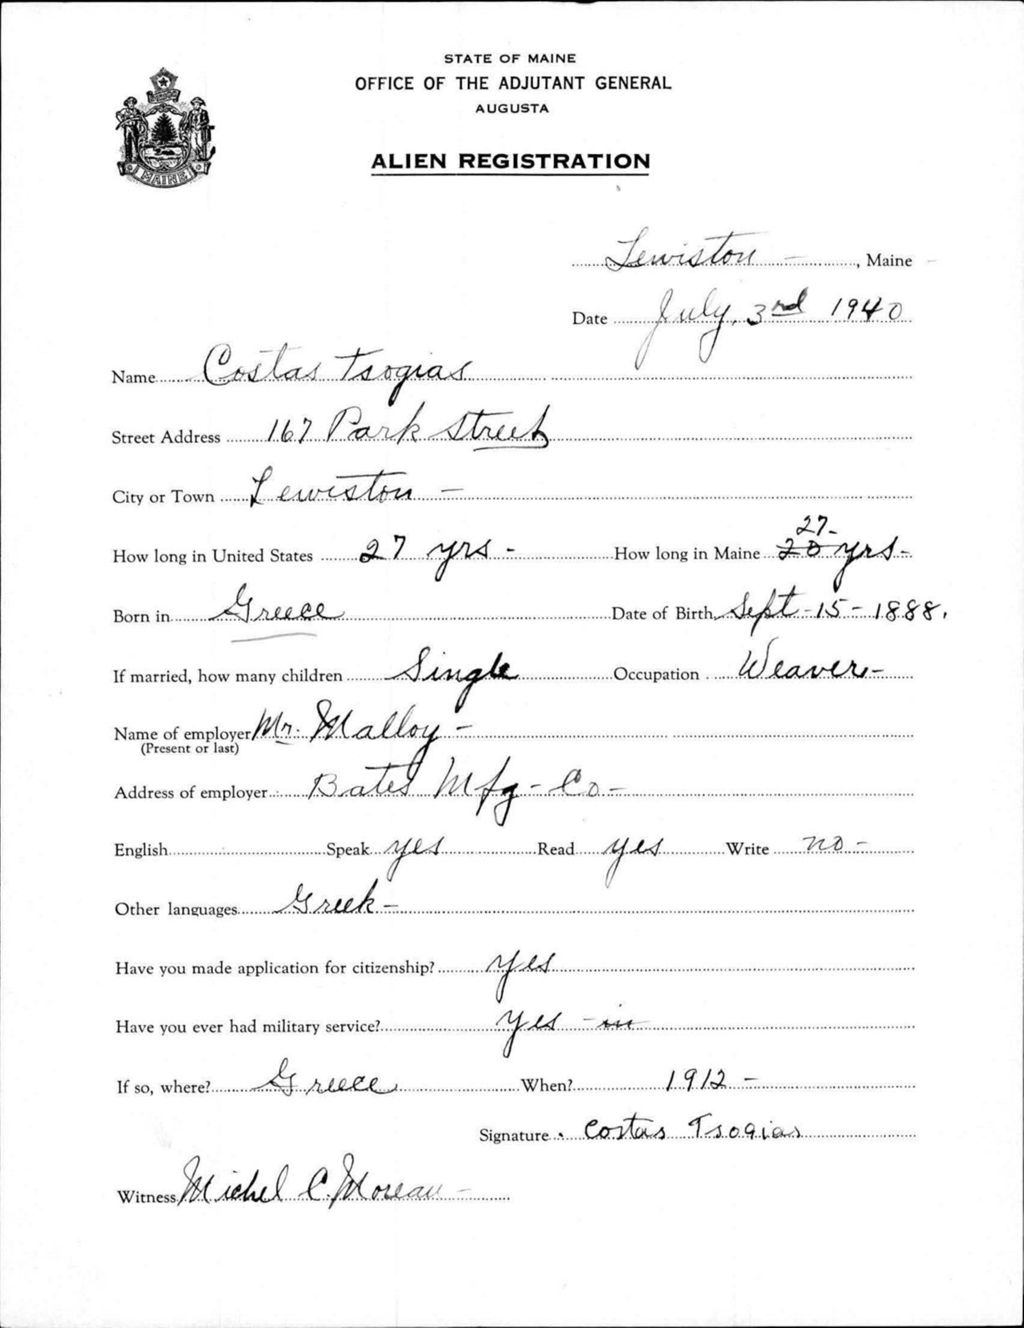 STATE OF MAINE
OFFICE OF THE ADJUTANT GENERAL
AUGUSTA
ALIEN REGISTRATION
MAINE
Lewiston - , Maine
Date July, 3rd 1940
Name Costas Tsogias
Street Address 167 Park Street
City or Town Lewiston -
How long in United States 27 yrs - How long in Maine 20 27 yrs -
Born in Greece Date of Birth Sept - 15 - 1888.
If married, how many children Single Occupation Weaver -
Name of employer Mr. Malloy -
(Present or last)
Address of employer Bates Mfg - Co -
English Speak yes Read yes Write no -
Other languages Greek -
Have you made application for citizenship? yes
Have you ever had military service? yes - in
If so, where? Greece When? 1912 -
Signature Costas Tsogias
Witness Michel C. Moreau -